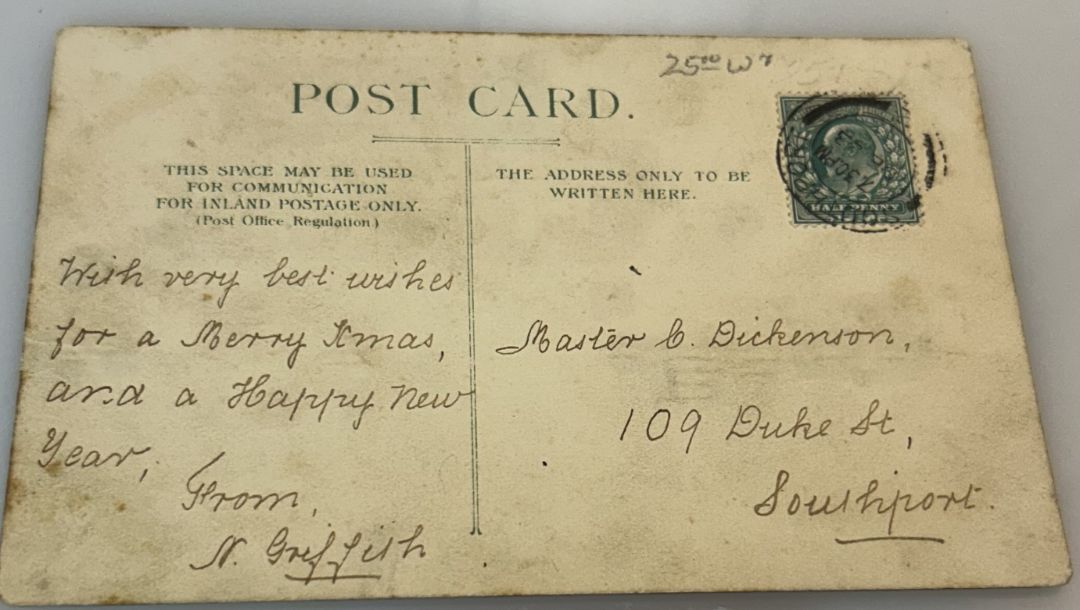 POST CARD.
THIS SPACE MAY BE USED
FOR COMMUNICATION
FOR INLAND POSTAGE ONLY.
(Post Office Regulation)
With very best wishes
for a Merry Xmas,
and a Happy New
Year,
From,
N. Griffith
THE ADDRESS ONLY TO BE
WRITTEN HERE.
HALF PENNY
SOUTHPORT
7.30PM
Master C. Dickenson,
109 Duke St,
Southport.